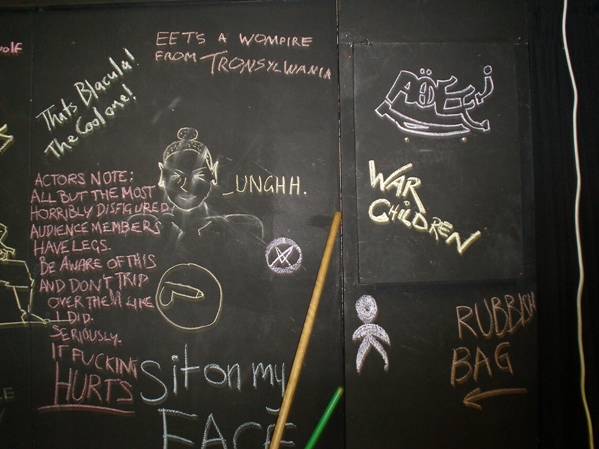 olf
EET'S A WOMPIRE
FROM TRONSYLWANIA
Thats Blacula!
The Cool one!
ACTORS NOTE:
ALL BUT THE MOST
HORRIBLY DISFIGURED
AUDIENCE MEMBERS
HAVE LEGS.
BE AWARE OF THIS
AND DON'T TRIP
OVER THEM LIKE
I DID.
SERIOUSLY.
IT FUCKING
HURTS
UNGHH.
Sit on my
FACE
WAR
CHiLDREN
RUBBISH
BAG